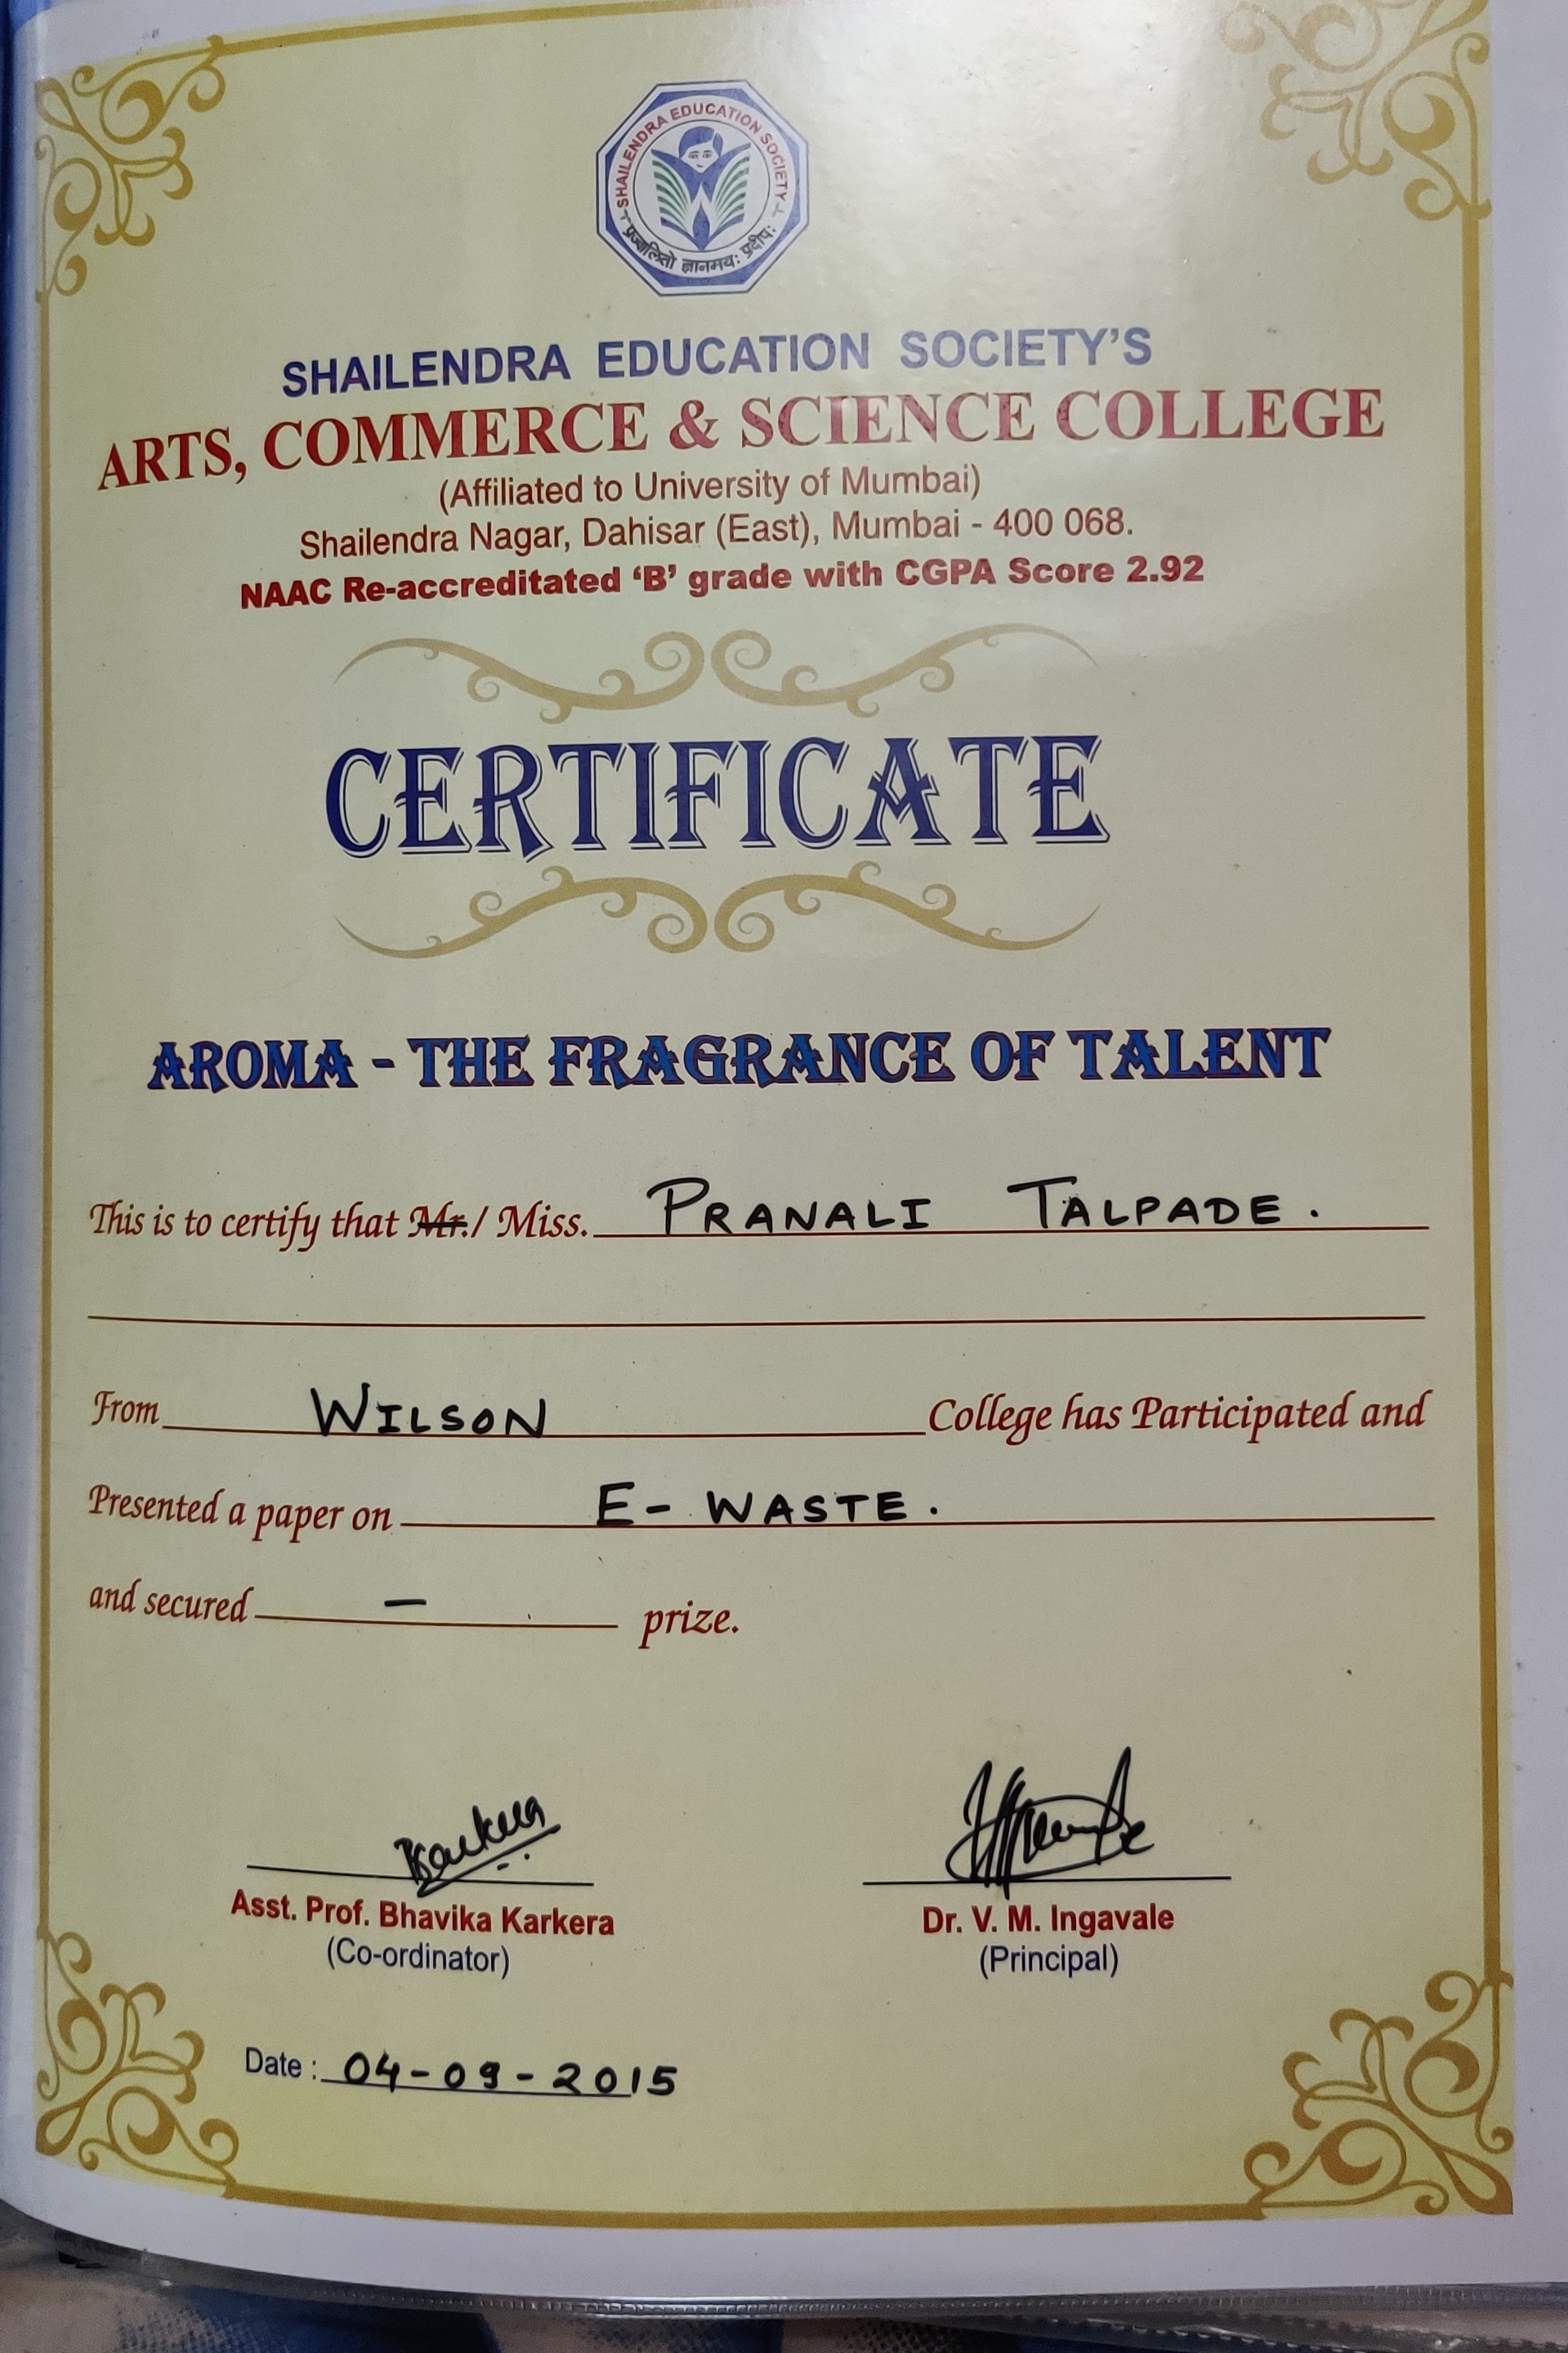 SHAILENDRA EDUCATION SOCIETY
प्रज्वालितो ज्ञानमय: प्रदीप:
SHAILENDRA EDUCATION SOCIETY'S
ARTS, COMMERCE & SCIENCE COLLEGE
(Affiliated to University of Mumbai)
Shailendra Nagar, Dahisar (East), Mumbai - 400 068.
NAAC Re-accreditated ‘B’ grade with CGPA Score 2.92
CERTIFICATE
AROMA - THE FRAGRANCE OF TALENT
This is to certify that Mr./ Miss. PRANALI TALPADE.
From WILSON College has Participated and
Presented a paper on E- WASTE.
and secured — prize.
Karkera
Asst. Prof. Bhavika Karkera
(Co-ordinator)
Dr. V. M. Ingavale
(Principal)
Date : 04-09-2015